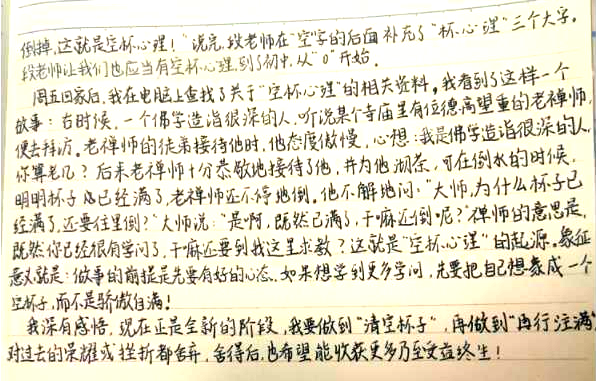 倒掉,这就是空杯心理!"说完,段老师在"空"字的后面补充了"杯心理"三个大字。
段老师让我们也应当有空杯心理,到了初中,从"0"开始。
周五回家后,我在电脑上查找了关于"空杯心理"的相关资料。我看到了这样一个
故事:古时候,一个佛学造诣很深的人,听说某个寺庙里有位德高望重的老禅师,
便去拜访。老禅师的徒弟接待他时,他态度傲慢,心想:我是佛学造诣很深的人,
你算老几?后来老禅师十分恭敬地接待了他,并为他沏茶,可在倒水的时候,
明明杯子已经满了,老禅师还不停地倒。他不解地问:"大师,为什么杯子已
经满了,还要往里倒?"大师说:"是啊,既然已满了,干嘛还倒呢?"禅师的意思是,
既然你已经很有学问了,干嘛还要到我这里求教?这就是"空杯心理"的起源。象征
意义就是:做事的前提是先要有好的心态。如果想学到更多学问,先要把自己想象成一个
空杯子,而不是骄傲自满!
我深有感悟,现在正是全新的阶段,我要做到"清空杯子",再做到"再行注满",
对过去的荣耀或挫折都舍弃,舍得后,也希望能收获更多乃至受益终生!